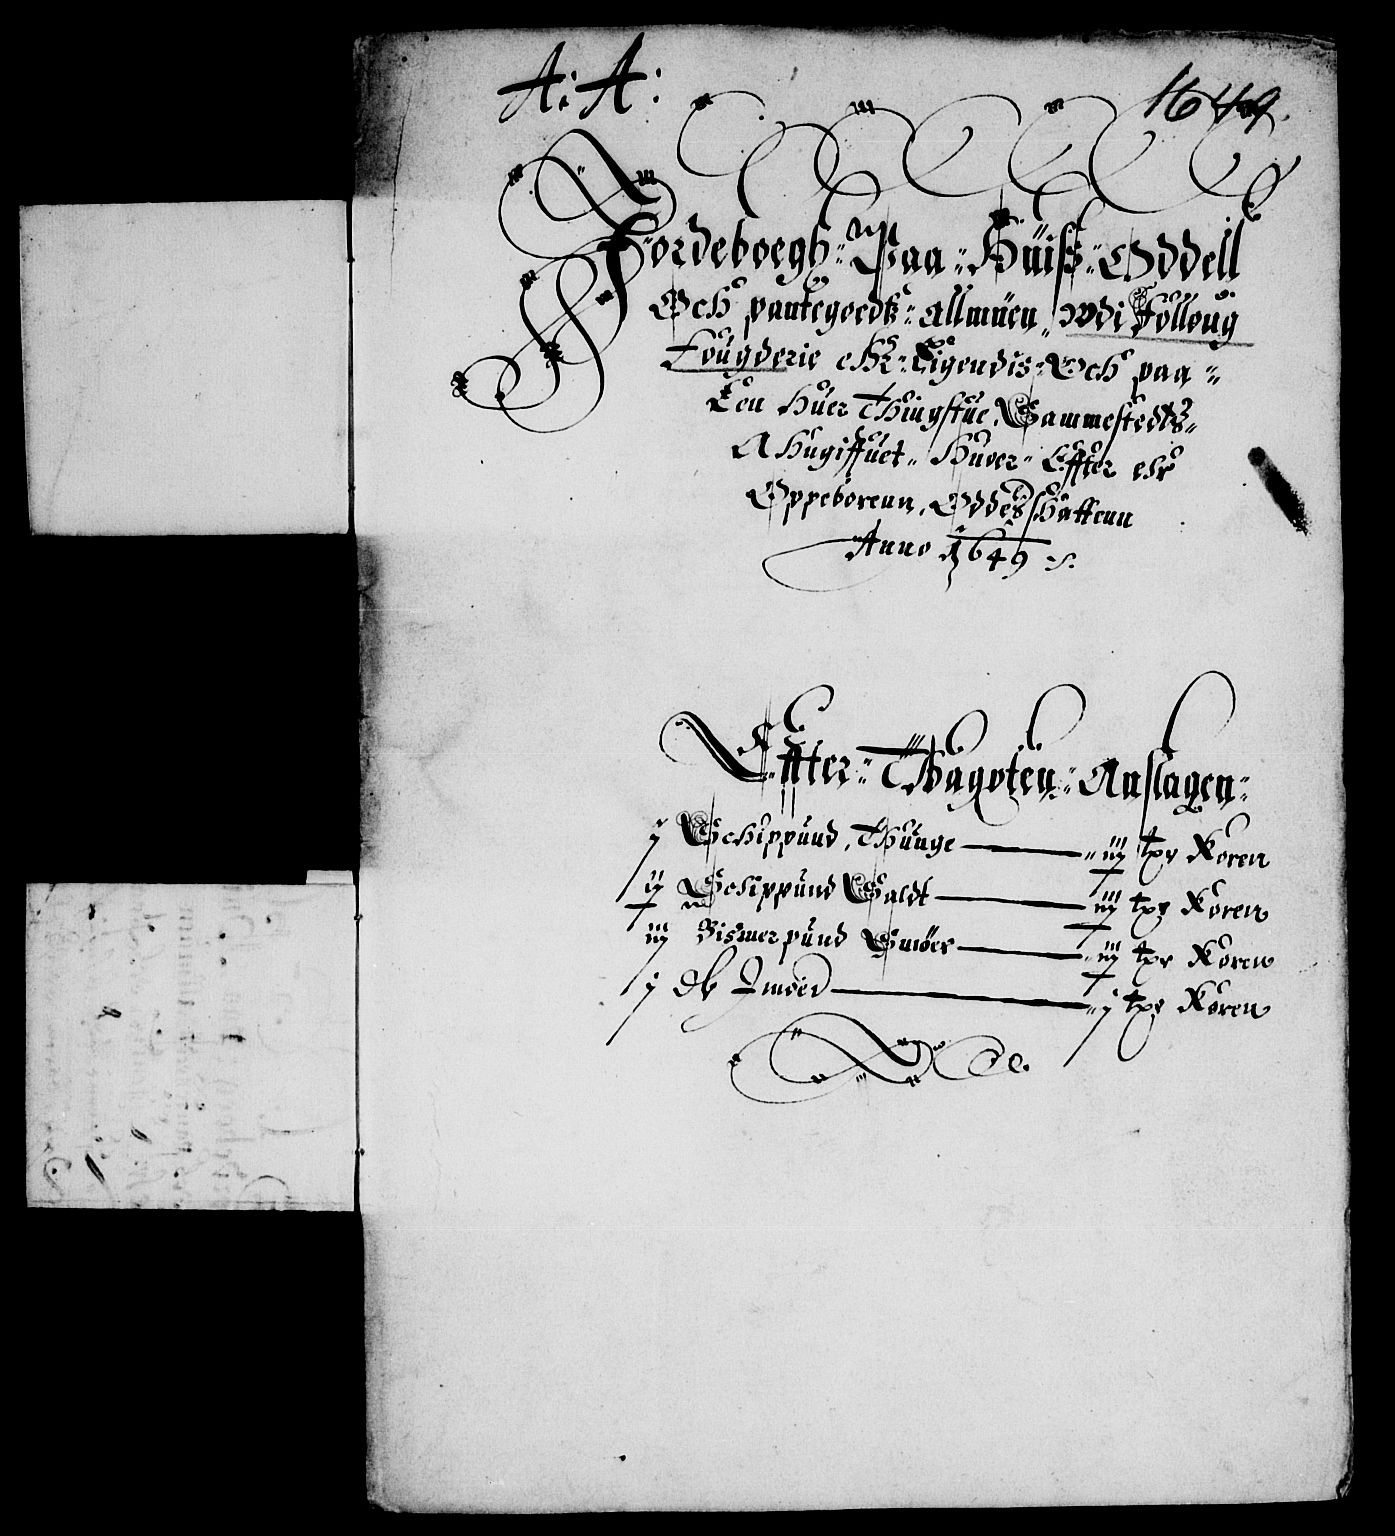 A: A:
1649.
Jordeboegh Paa Huiss Oddell
Och pantegoedtz allmuen Wdi Folloug
Fougderie ehr Eigendis Och paa
Een huer Thingstue Sammestedts
Ahngiffuet huoer Effter ehr
Oppeboren, Oddesshaffenn
Anno 1649
Effter Thagsten Anslagen
j Schippund Thunge — iij tpr Koren
ij Schippund Saldt — iij tpr Koren
iij Bismerpund Smöer — iij tpr Koren
j dl Smöer — j tpr Koren